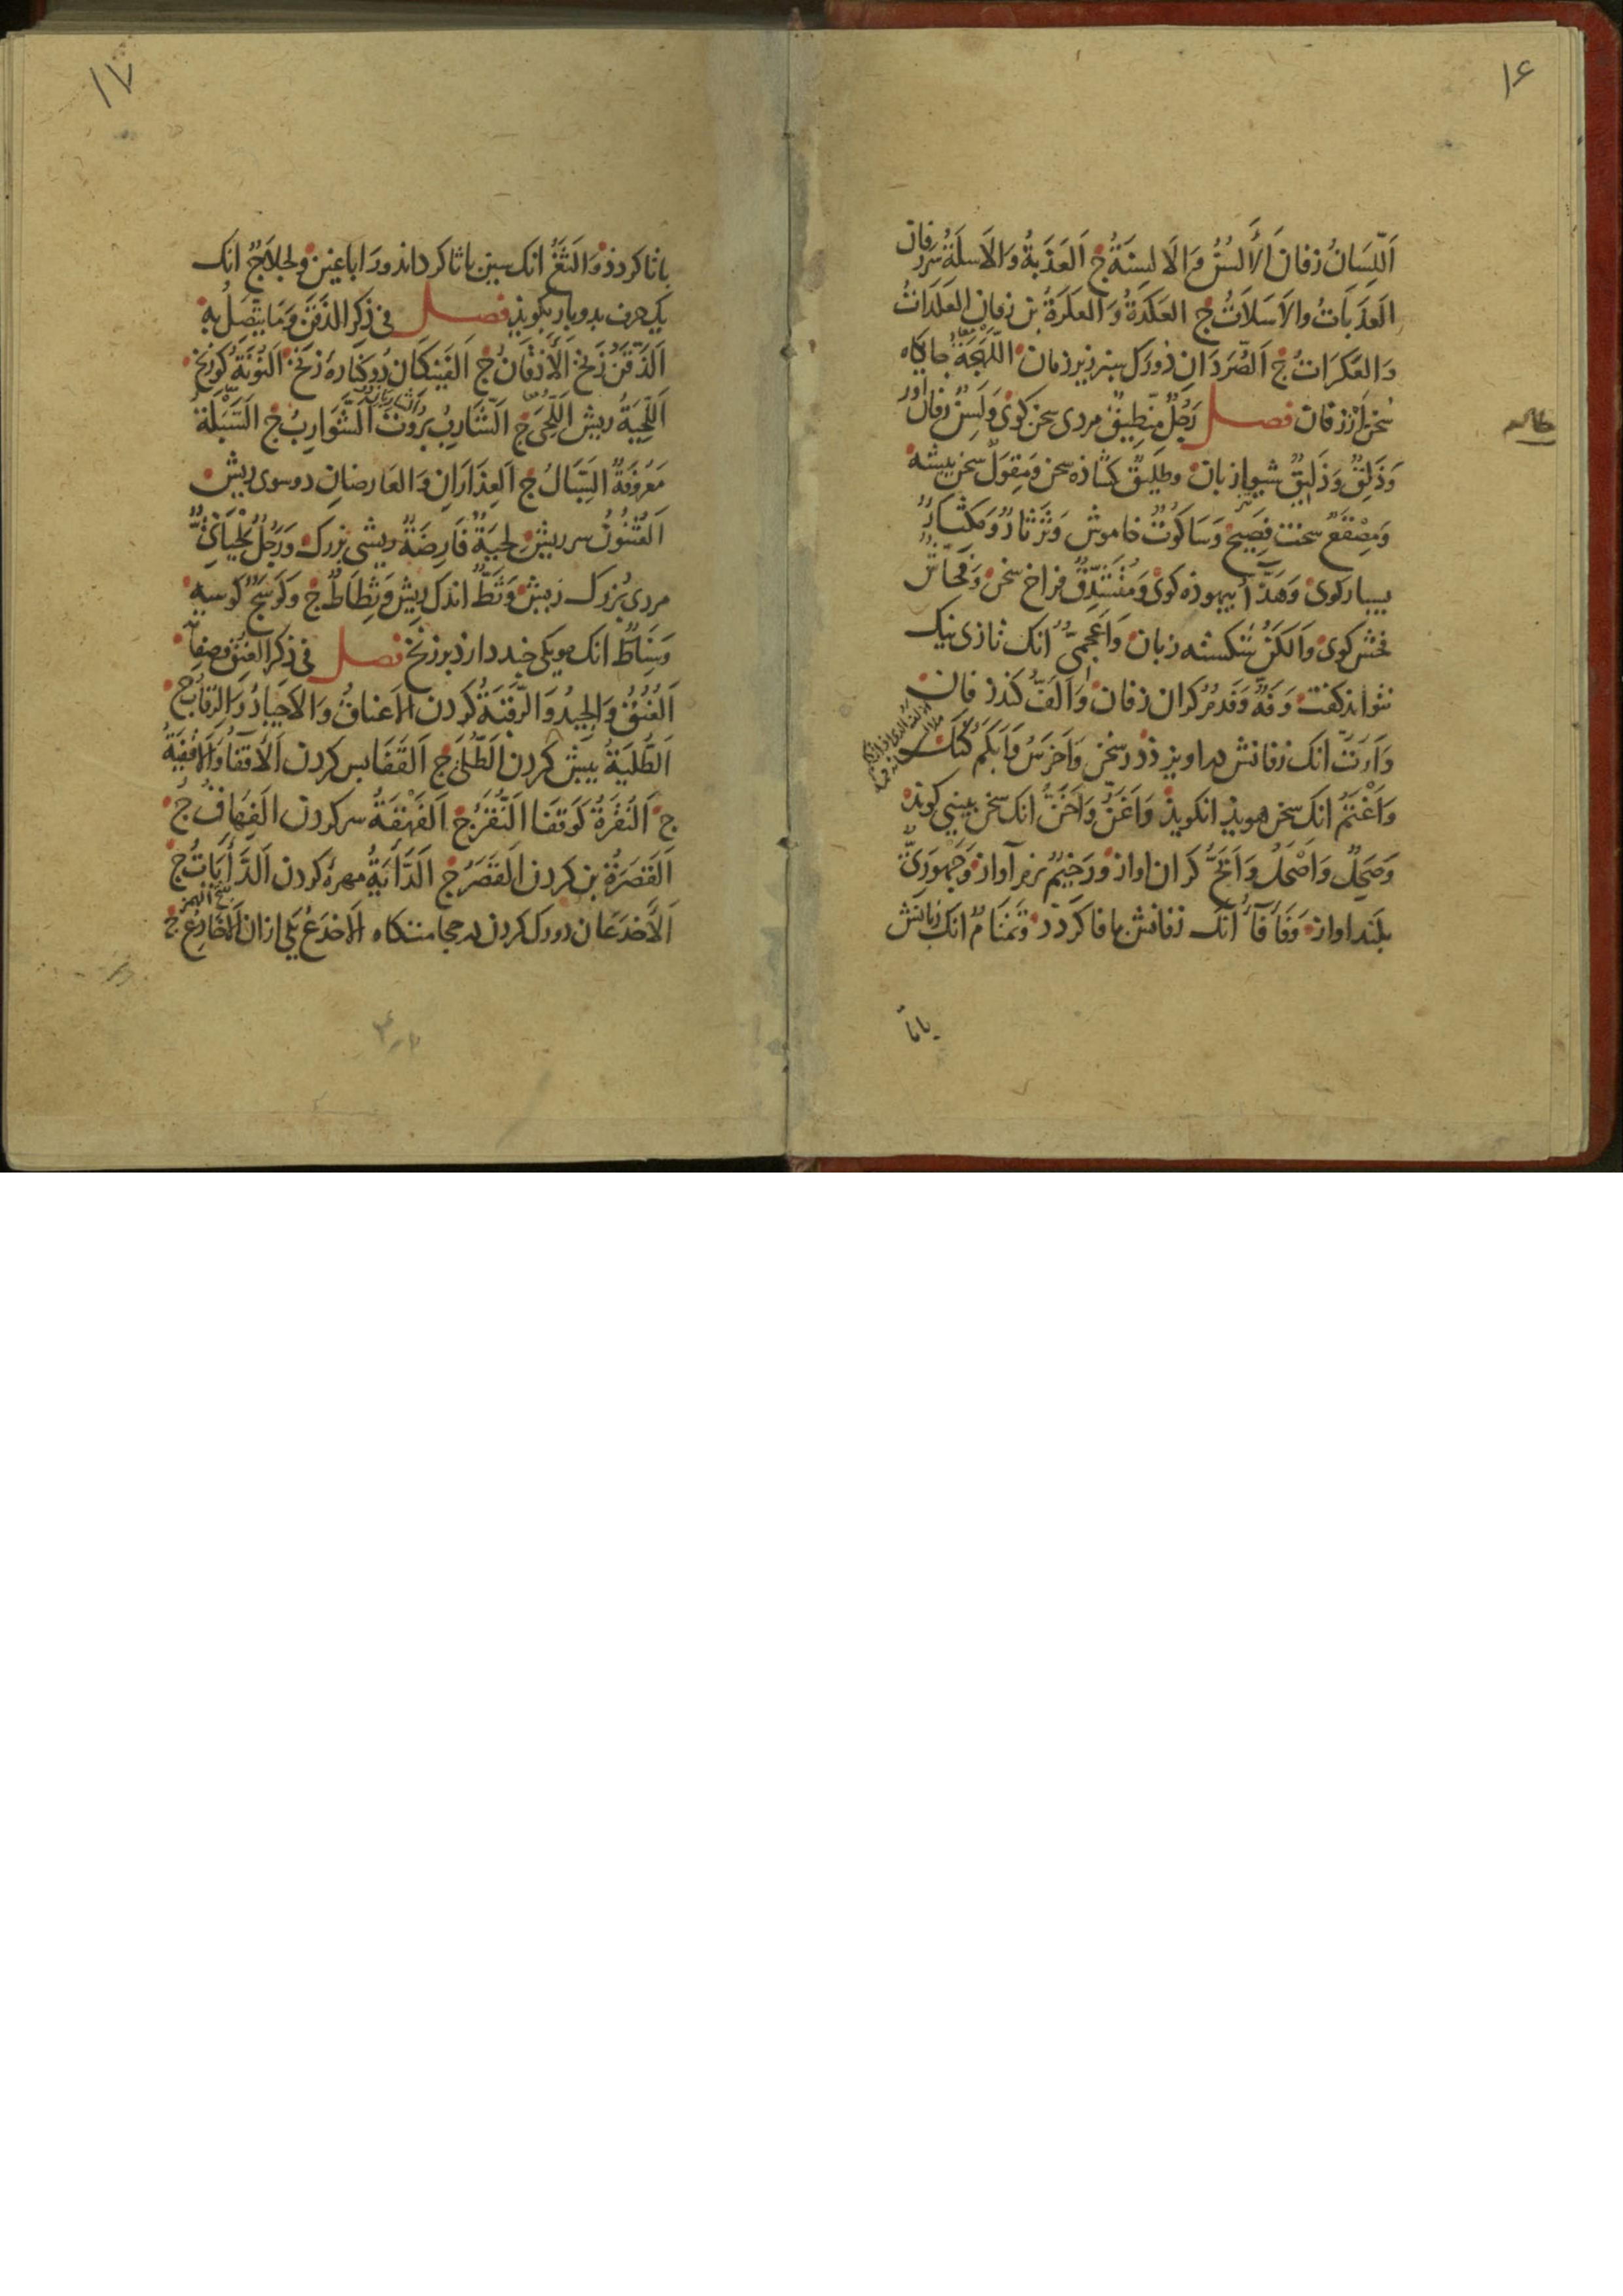 ۱۶
اَللِّسَانُ زفان اَلْأَلْسُنُ وَالْاَلسِنَةُ ج اَلعَذَبَةُ وَالْاَسَلَةُ سر زفان
اَلعَذَبَاتُ والاَسَلَاتُ ج العَكَدَةُ وَالعَكَرَةُ بن زفان العَكَدَاتُ
وَالعَكَرَاتُ ج اَلصُّرَدَانِ دورك سبز زير زفان اللَّهْجَةُ جايكاه
سُخن از زفان فصل رَجُلٌ مِنْطِيقٌ مردى سخن كوى وَلَسِنٌ زفان آور
وَذَلِقٌ وَذَلِيقٌ شيوا زبان وطَلِيقٌ كشاذه سخن وَمِقوَلٌ سخن پيشه
وَمِصْقَعٌ سخت فصيح وَسَاكُوتٌ خاموش وَثَرْثَارٌ وَمِكْثَارٌ
بسيار كوى وَهَذَّاءٌ بيهوذه كوى وَمُتَشَدِّقٌ فراخ سخن وَفَحَّاشٌ
فحش كوى وَاَلكَنُ شكسته زبان وَاَعْجَمِيٌّ انك تازى نيك
نتواند كفت وَفَهٌّ وَفَدْمٌ كران زفان وَاَلَفُّ كند زفان
وَاَرَتُّ انك زفانش دراويزذ در سخن وَاَخرَسُ وَاَبكَمُ كنك
وَاَغْتَمُ انك سخن هويذا نكويذ وَاَغَنُّ وَاَخَنُّ انك سخن ببينى كويذ
وَصَحِلٌ وَاَصْحَلُ وَاَبَحُّ كران اواز وَرَخِيمٌ نرم آواز وَجَهْوَرِيٌّ
بلند اواز وَفَأْفَاءٌ آنك زفانش بافا كردد وَتَمْتَامٌ انك زبانش
باتا
۱۷
باتا كردذ وَاَلثَغُ انك سين باثا كرداند ورا باغين ولَجلَاجٌ انك
يك حرف بدو بار بكويذ فصل فى ذِكرِ الذَقَنِ وَمَا يَتَّصِلُ بِهِ
اَلذَّقَنُ زَنخ اَلْأَذْقَانُ ج اَلفَنِيكَانِ دو كناره زنخ اَلنُّونَةُ كو زنخ
اَللِّحْيَةُ ريش اَللِّحَى ج اَلشَّارِبُ بروت اَلشَّوَارِبُ ج اَلسَّبَلَةُ
مَعرُوفَةٌ السِّبَالُ ج اَلعِذَارَانِ وَالعَارِضَانِ دو سوى ريش
اَلعُثْنُونُ سر ريش لِحيَةٌ فَارِضَةٌ ريشى بزرك وَرَجُلٌ لِحْيَانِيٌّ
مردى بُزرك ريش وَثَطٌّ اندك ريش وَثِطَاطٌ ج وَكَوسَجٌ كوسه
وَسِنَاطٌ انك مويكى چند دارذ برزنخ فصل فى ذِكرِ العُنُقِ وصِفَاتِه
اَلعُنُقُ وَالجِيدُ وَالرَّقَبَةُ كردن الاَعنَاقُ وَالاَجيَادُ وَالرِّقَابُ ج
اَلطُّلْيَةُ پيش كردن اَلطُّلَى ج اَلقَفَا پس كردن اَلْأَقفَاءُ وَالاَقْفِيَةُ
ج اَلنُّقْرَةُ كو قفا اَلنُّقَرُ ج اَلفَهْقَةُ سر كردن اَلفِهَاقُ ج
اَلقَصَرَةُ بن كردن اَلقَصَرُ ج اَلدَّأيَةُ مهره كردن اَلدَّأيَاتُ ج
اَلْأَخدَعَانِ دو رك كردن در حجامتكاه الاَخدَعُ يكى ازان اَلْأَخَادِعُ ج